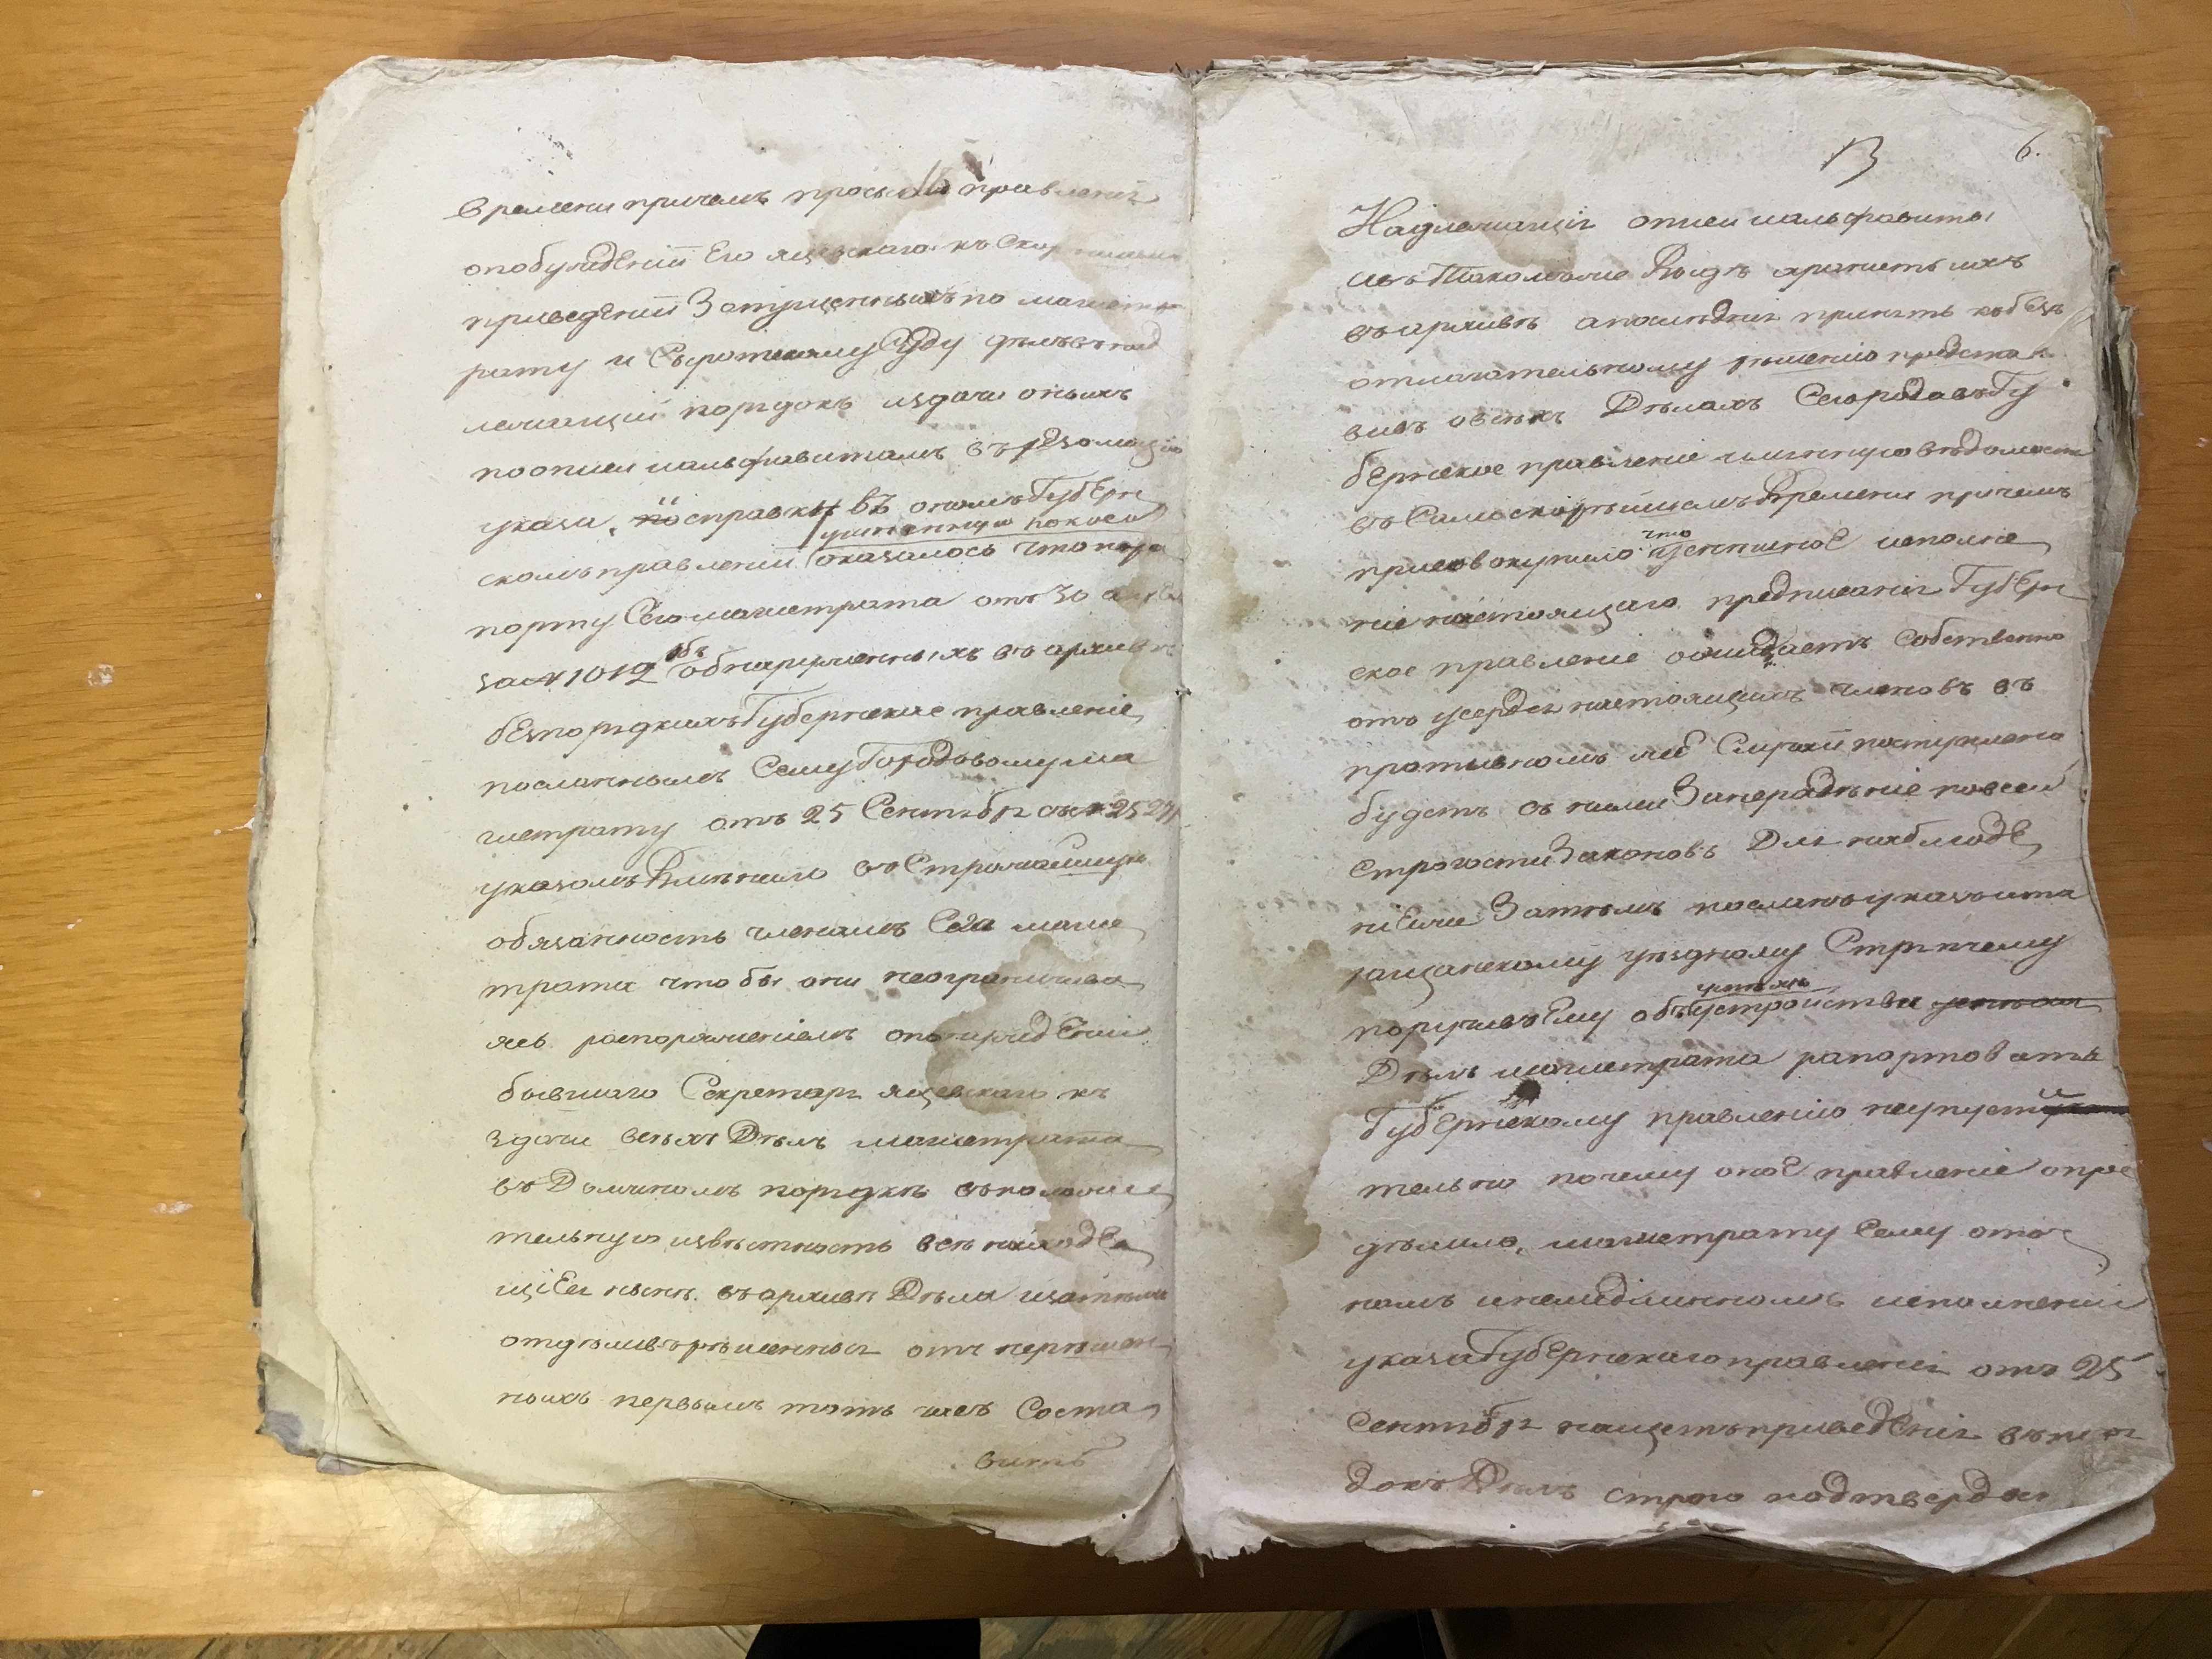 времени причемъ просилъ правленiя
опобужденiи Его яцевскаго къ Скор
приведенiи Запущенныхъ по магист
рату и Сыротскому Суду дѣлъ въ над
лежащiй порядокъ издачи оныхъ
поописи иалфавитамъ въ резолюцiю
указа, посправки въ ономъ Губерн
учиненную
скомъ правленiи оказалось что пора
порту Сего магистрата отъ 30
за № 1012 объ обнаруженныхъ въ архивѣ
безпорядкахъ Губернское правленiе
посланнымъ Сему Городовому ма
гистрату отъ 25 Сентября за №
указомъ Вмѣнило въ Строжайшую
обязанность членамъ Сего маги
страта что бы они неограничива
ясь распоряженiемъ опонужденiи
бывшаго Секретаря яцевскаго къ
здачи всѣхъ Дѣлъ магистрата
въ Должномъ порядкѣ въположи
тельную извѣстность всѣ находя
щiеся нынѣ въархивѣ Дѣла изатѣмъ
отдѣливъ рѣшенныя отъ нерѣшен
ныхъ первымъ тотъ часъ Соста
вить
13 6.
Надлежащiя описи иалфавиты
ивъ Такомъже Видѣ хранить ихъ
въархивѣ апослѣднiя принять кобезъ
отлагательному рѣшенiю предста
вивъ овсѣхъ Дѣлахъ Сегорода въ Гу
бернское правленiе имянную вѣдомость
въ Самоскорѣйшемъ Времени причемъ
присовокупило что успѣшное исполне
нiе настоящаго предписанiя Губерн
ское правленiе ожидаетъ Собственно
отъ усердiя настоящихъ членовъ въ
противномъ же Случаи поступлено
будетъ съ ними Занерадѣнiе повсей
строгости Законовъ Для наблюде
нiежъ Затѣмъ посланъ указъ ита
ращанскому уѣздному Стряпчему
поручивъ Ему объ устройстве
Дѣлъ магистрата рапортовать
Губернскому правленiю неупусти
тельно почему оное правленiе опре
дѣлило, магистрату Сему оточ
номъ инемедлѣнномъ исполненiи
указа Губернскаго правленiя отъ 25
Сентября нащетъ приведенiя въпоря
докъ Дѣлъ строго подтвердя